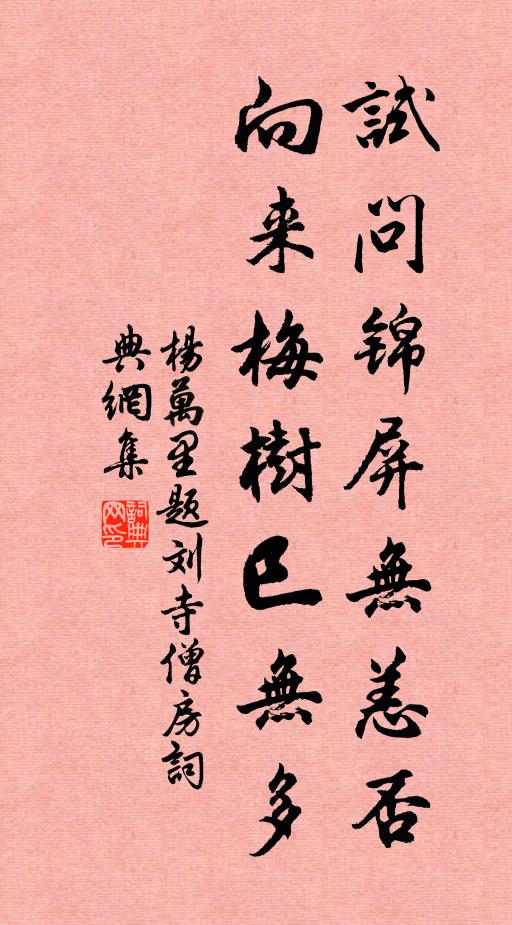 試問锦屏無恙否
向来梅樹已無多
楊萬里题刘寺僧房詞
典網集
詞典
网印